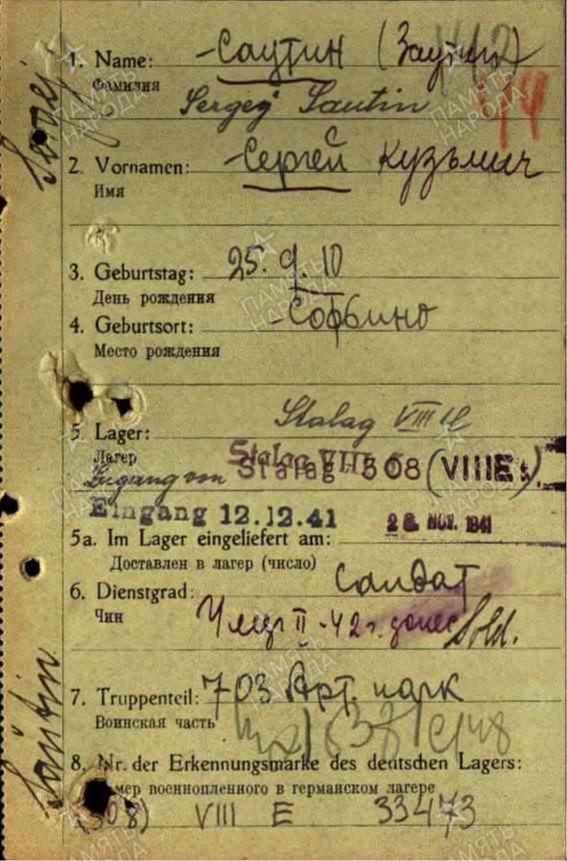 1. Name: Саутин (Заутин)
Фамилия
Sergej Sautin
2. Vornamen: Сергей Кузьмич
Имя
3. Geburtstag: 25.9.10
День рождения
4. Geburtsort:
Место рождения
5. Lager: Stalag VIII
Лагер
Zugang von Stalag 308 (VIIIE)
Eingang 12.12.41 28. NOV. 1941
5a. Im Lager eingeliefert am:
Доставлен в лагер (число)
6. Dienstgrad: Солдат
Чин
Sold.
7. Truppenteil: 703 Арт. парк
Воинская часть
8. Nr. der Erkennungsmarke des deutschen Lagers:
мер военнопленного в германском лагере
(308) VIII E 33473
Sergej
Sautin
ПАМЯТЬ НАРОДА